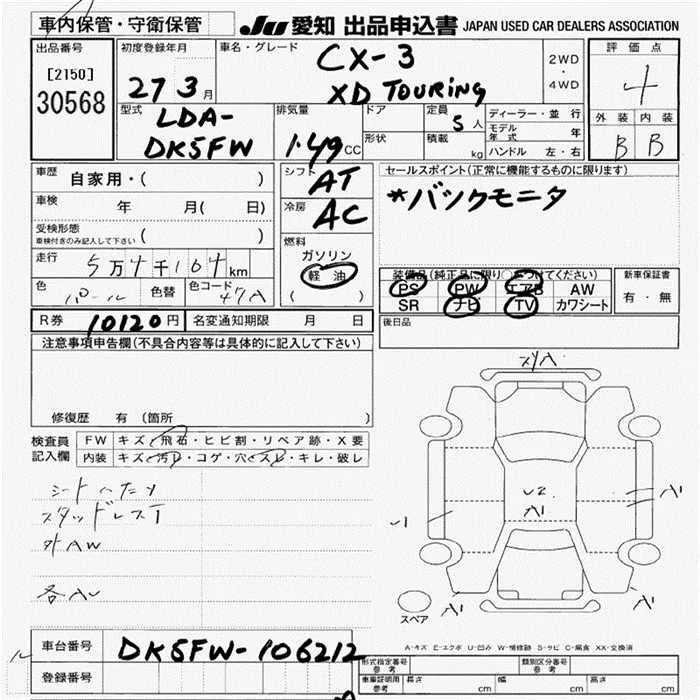 車内保管・守衛保管
JU 愛知 出品申込書 JAPAN USED CAR DEALERS ASSOCIATION
出品番号
[2150]
30568
初度登録年月
27 3 月
車名・グレード
CX-3
XD TOURING
2WD
・
4WD
評価点
4
外装 内装
B B
型式
LDA-
DK5FW
排気量
1.49 CC
ドア
形状
定員
5 人
積載
kg
ディーラー・並行
モデル年式 年
ハンドル 左・右
車歴 自家用・( )
車検 年 月( 日)
受検形態
車検付きのみ記入して下さい ( )
走行 5万4千104 km
色 パール 色替 色コード 47A
シフト AT
冷房 AC
燃料
ガソリン
軽油
( )
セールスポイント(正常に機能するものに限ります)
*バックモニタ
装備品(純正品に限り○をつけてください)
PS PW エアB AW
SR ナビ TV カワシート
新車保証書
有・無
後日品
R券 10120 円 名変通知期限 月 日
注意事項申告欄(不具合内容等は具体的に記入して下さい)
修復歴 有 (箇所 )
検査員記入欄
FW キズ・飛石・ヒビ割・リペア跡・X要
内装 キズ・汚レ・コゲ・穴・スレ・キレ・破レ
シートヘタリ
スタッドレスT
外AW
各AU
U2
A1
A1
A1
A1
スペア
A-キズ E-エクボ U-凹み W-補修跡 S-サビ C-腐食 XX-交換済
車台番号 DK5FW-106212
登録番号
形式指定番号
参考
類別区分番号
参考
車庫証明用
参考
長さ cm 幅 cm 高さ cm